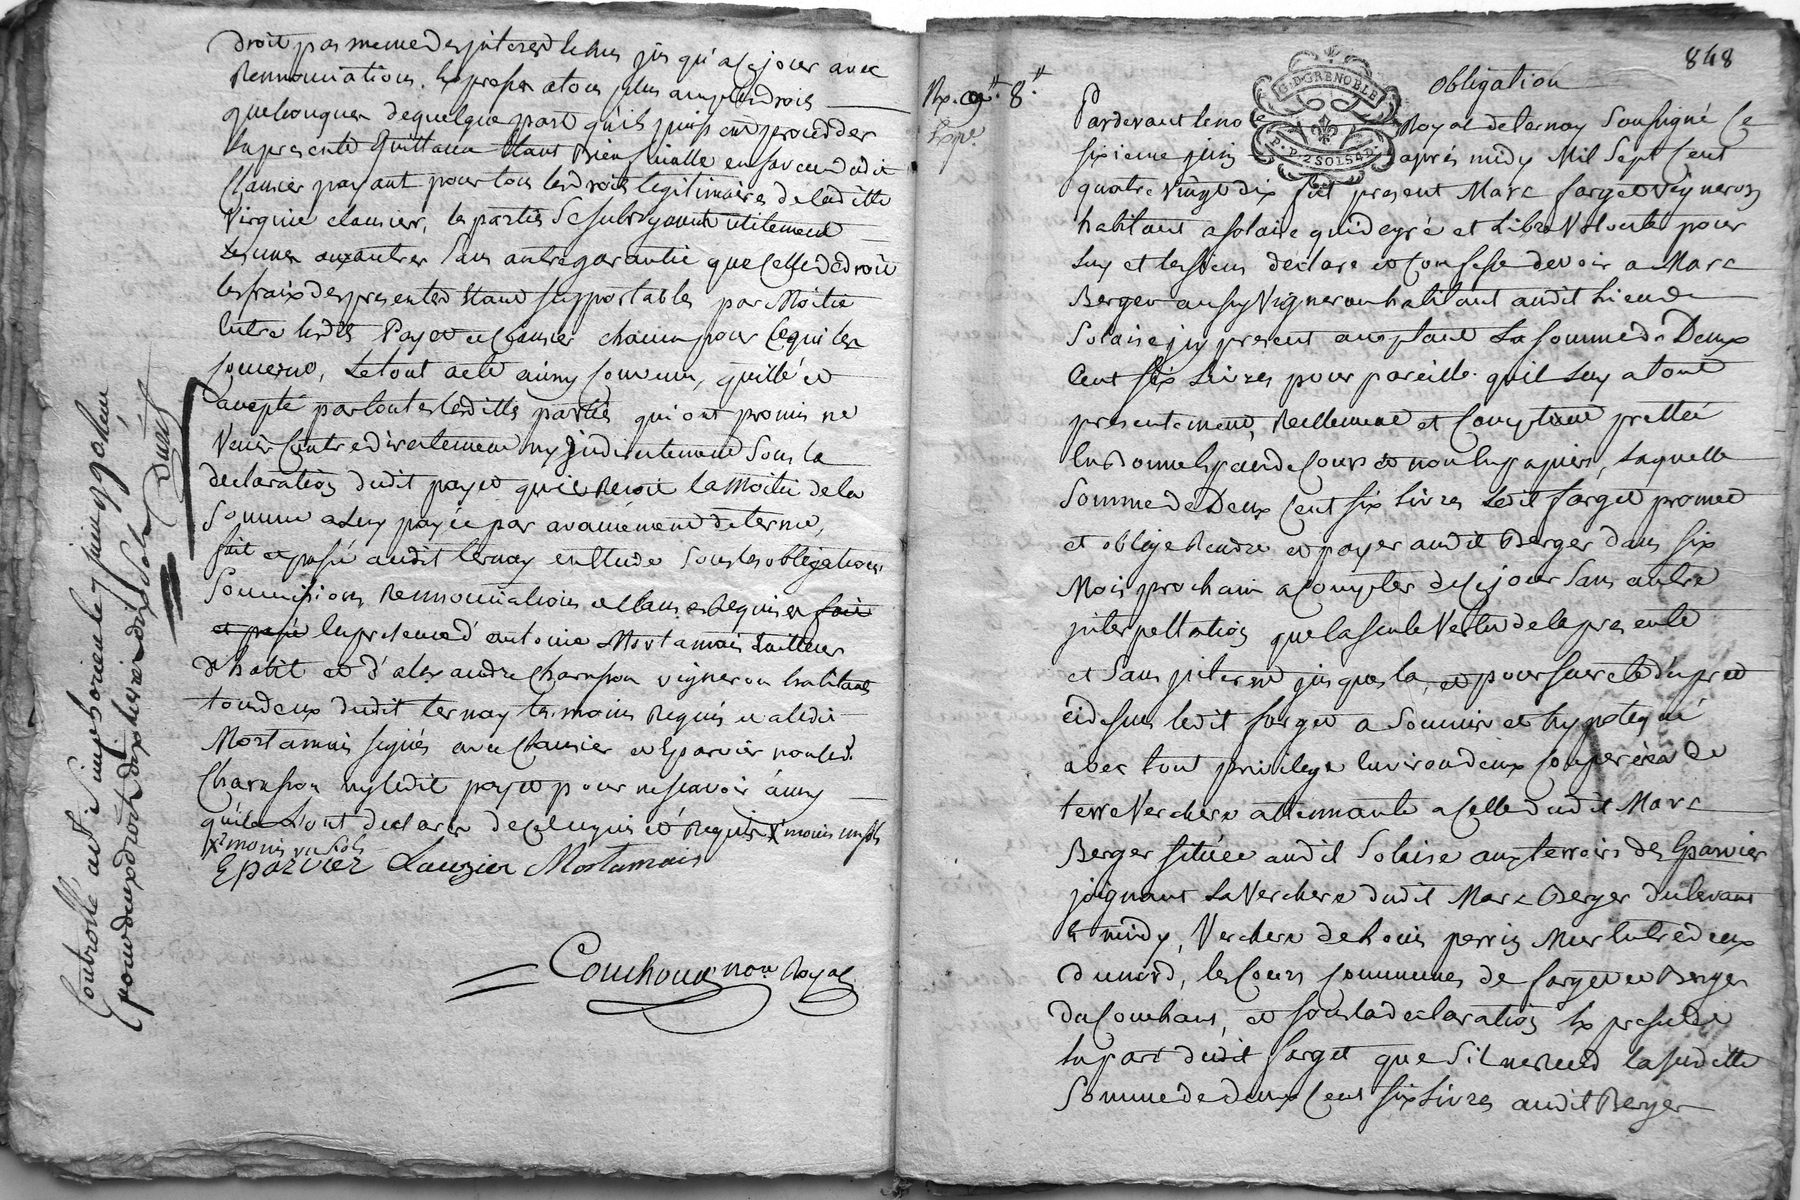 droit pas meme des interest le tous jus qu'a ce jour avec
Rennonciations. Expresses a tous plus amples droits
quelconques de quelque part qu'ils puissent proceder
la presente Quittance étant Bien faitte en faveur dudit
Clausier payant pour tous les droits legitimaires de laditte
Virginie clausier, les parties se subrogeant utilement
les unes aux autres sans autre garantie que celle de droit
les fraix des presentes étant supportables par Moitié
Entre lesdits Payet et Clausier chacun pour ce qui les
concerne, le tout acte ainsy convenu, quitté et
accepté par toutes lesdittes parties qui ont promis ne
Venir Contre directement ny Indirectement sous la
declaration dudit payet qu'il Recoit la Moitié de la
somme a luy payée par avancement de terme,
fait et passé audit ternay en Etude sous les obligations
Soumissions Rennonciations et clauses Requises fait
et passé En presence d'antoine Mortamais tailleur
d'habit et d'alexandre Charnpon vigneron habitants
tous deux dudit ternay temoins Requis et ledit
Mortamais signés avec Clausier et Eparvier non led.
Charnpon ny ledit payet pour ne scavoir ainsy
qu'ils L'ont declaré de ce Enquis et Requis X moins un sols
X moins un sols
Eparvier Lauzier Mortamais
Couchoud no.re Royal
Controllé a st simphorien le 7 juin 1790 Reçu
pour deux droits dix livres dix sols
Durel
848
Rx. 8.
Exp.é
G.D. GRENOBLE
P.P. 2 SOLS A.D.
obligation
Pardevant le no Royal de ternay Soussigné Ce
sixieme juin après midy Mil Sept Cent
quatre Vingt dix fut present Marc forget Vigneron
habitant a solaise qui de gré et libre Volonté pour
luy et les siens declare et Confesse devoir a Marc
Berger aussy Vigneron habitant audit Lieu de
Solaise icy present acceptant La somme de Deux
Cent six Livres pour pareille qu'il luy a tout
presentement, Reellement et Comptant prettée
En Bonnes Especes de Cours et non En papiers, Laquelle
Somme de Deux Cent six Livres Ledit forget promet
et oblige Rendre et payer audit Berger dans six
Mois prochain a Compter de ce jour sans autre
interpellation que la seule Vertu de la presente
et sans interest jusques la, et pour sureté du pret
cidessus ledit forget a soumis et hypotequé
avec tout privilege Environ deux couperées de
terre Verchere attennante a celle dudit Marc
Berger située audit Solaise aux terroirs des Eparvier
joignant La Verchere dudit Marc Berger du levant
et midy, Verchere de Louis perrin Mur Entre deux
du nord, les Cours communes de forget et Berger
du Couchant, et sous la declaration Expresse de
la part dudit forget que s'il ne Rend la susditte
Somme de deux Cent six Livres audit Berger